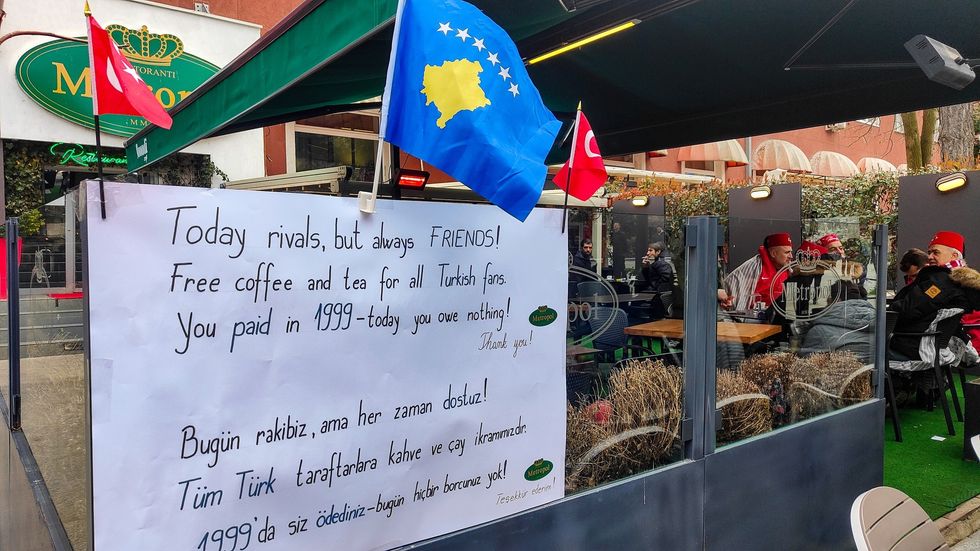 RISTORANTI
Restaurant
Today rivals, but always FRIENDS!
Free coffee and tea for all Turkish fans.
You paid in 1999-today you owe nothing!
Metropol
Thank you!
Bugün rakibiz, ama her zaman dostuz!
Tüm Türk taraftarlara kahve ve çay ikramımızdır.
1999'da siz ödediniz-bugün hiçbir borcunuz yok!
Metropol
Teşekkür ederim!